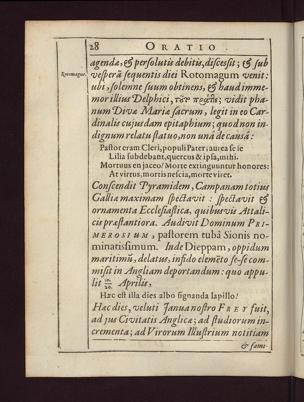 28 ORATIO
agenda, & persolutis debitis, discessit; & sub
Rotomagus. vesperã sequentis diei Rotomagum venit:
ubi, solemne suum obtinens, & haud imme-
mor illius Delphici, vidit pha-
num Divæ Mariæ sacrum, legit in eo Car-
dinalis cujusdam epitaphium; quod non in-
dignum relatu statuo, non unâ de causâ:
Pastor eram Cleri, populi Pater; aurea se se
Lilia subdebant, quercus & ipsa, mihi.
Mortuus en jaceo! Morte extinguuntur honores:
At virtus, mortis nescia, morte viret.
Conscendit Pyramidem, Campanam totius
Galliæ maximam spectavit: spectavit &
ornamenta Ecclesiastica, quibusvis Attali-
cis præstantiora. Audivit Dominum PRI-
MEROSIUM, pastorem tubâ Sionis no-
minatissimum. Inde Dieppam, oppidum
maritimũ, delatus, infido elemēto se-se com-
misit in Angliam deportandum: quo appu-
lit Aprilis,
Hæc est illa dies albo signanda lapillo!
Hæc dies, veluti Janua nostro FREY fuit,
ad jus Civitatis Anglicæ; ad studiorum in-
crementa; ad Virorum Illustrium notitiam
& fami-